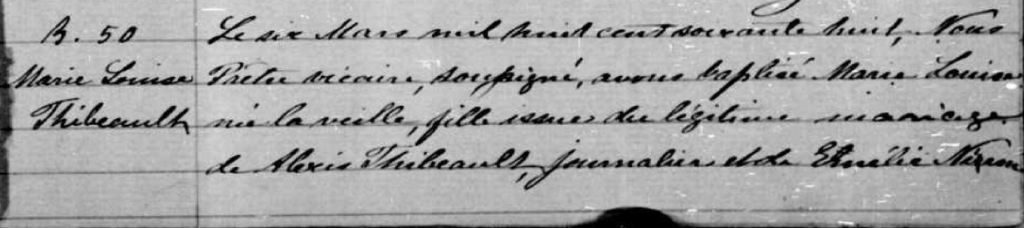 B. 50
Marie Louise
Thibeault
Le six Mars mil huit cent soixante huit, Nous
Prêtre vicaire, soussigné, avons baptisé Marie Louise
née la veille, fille issue du légitime mariage
de Alexis Thibeault, journalier et de Emélie